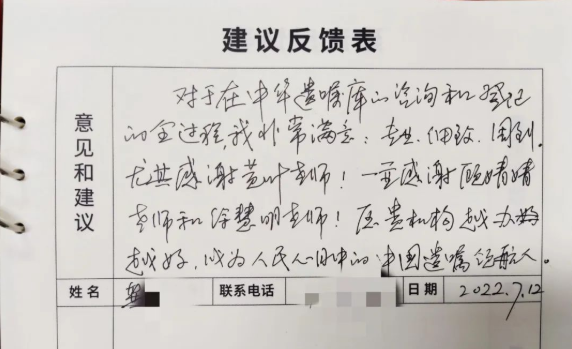 建议反馈表
意见和建议
对于在中华遗嘱库的咨询和登记
的全过程我非常满意：专业、细致、周到。
尤其感谢黄叶老师！一并感谢顾婧婧
老师和徐慧明老师！愿贵机构越办
越好，成为人民心目中的中国遗嘱领航人。
姓名
联系电话
日期 2022.7.12